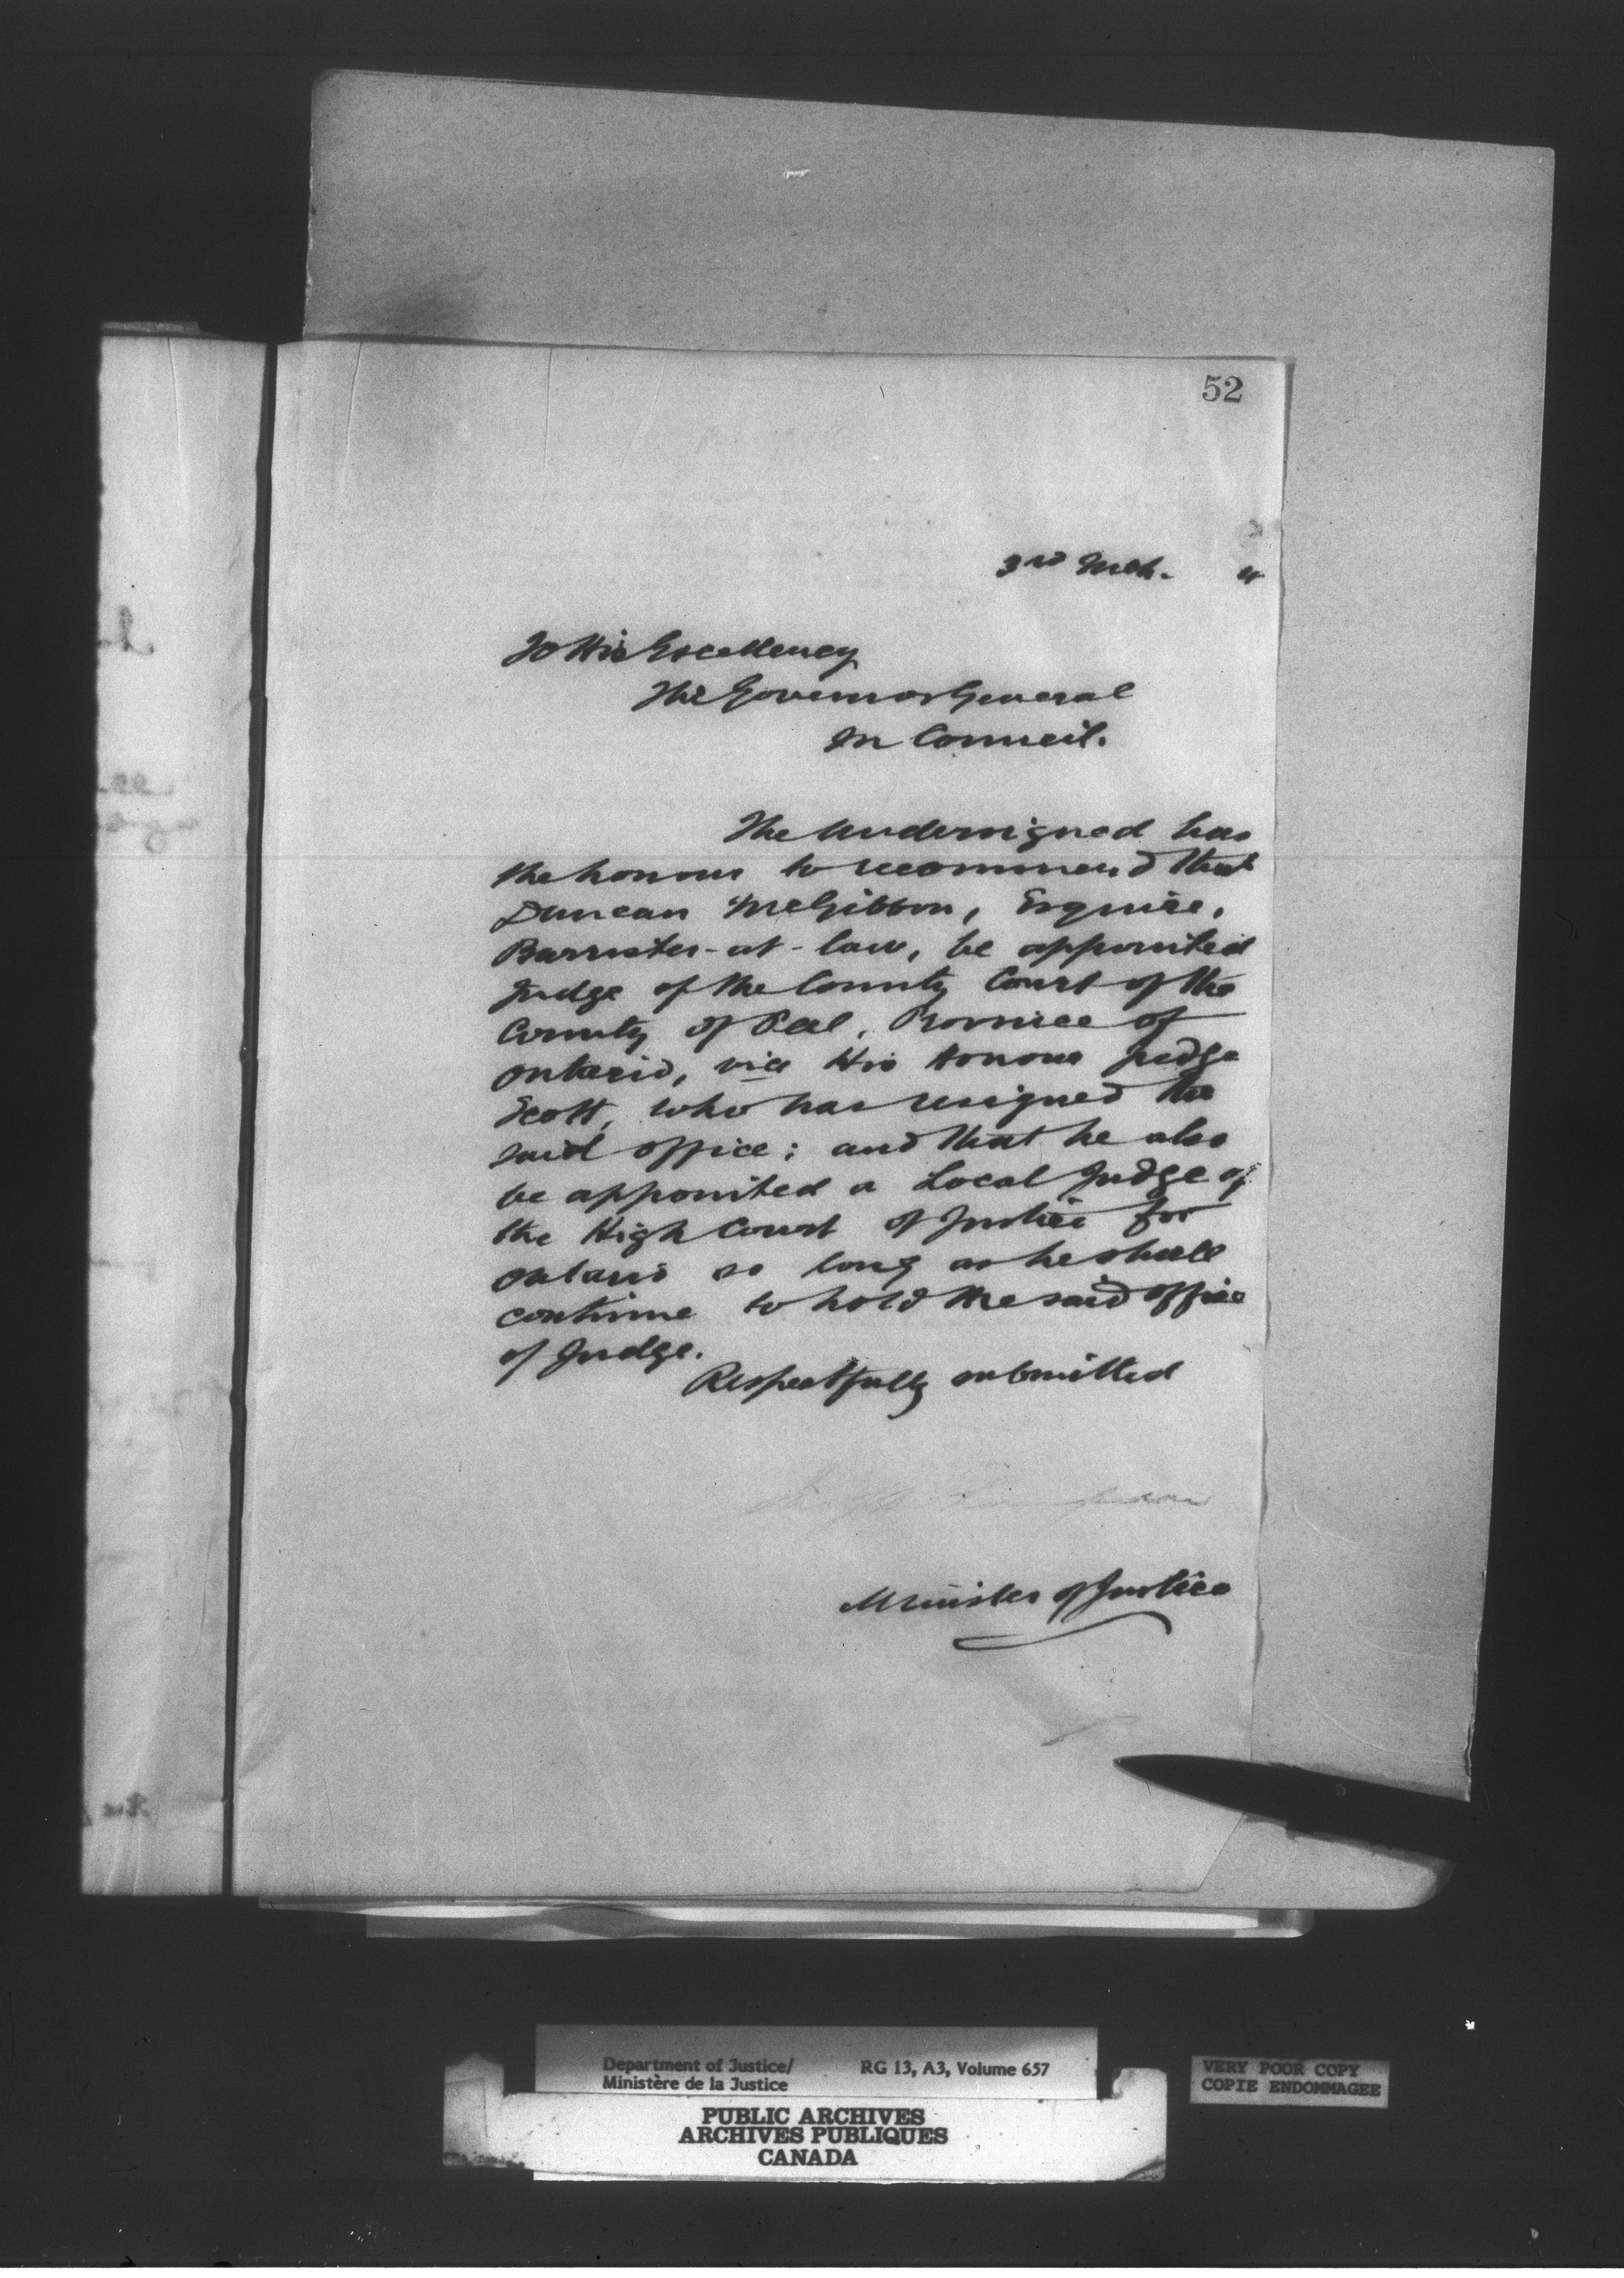 52
3rd Mch. 4
To His Excellency
The Governor General
In Council.
The undersigned has
the honour to recommend that
Duncan McGibbon, Esquire,
Barrister-at-law, be appointed
Judge of the County Court of the
County of Peel, Province of
Ontario, vice His Honour Judge
Scott, who has resigned the
said office; and that he also
be appointed a Local Judge of
the High Court of Justice for
Ontario so long as he shall
continue to hold the said office
of Judge.
Respectfully submitted
Minister of Justice
Department of Justice/ RG 13, A3, Volume 657
Ministère de la Justice
PUBLIC ARCHIVES
ARCHIVES PUBLIQUES
CANADA
VERY POOR COPY
COPIE ENDOMMAGEE